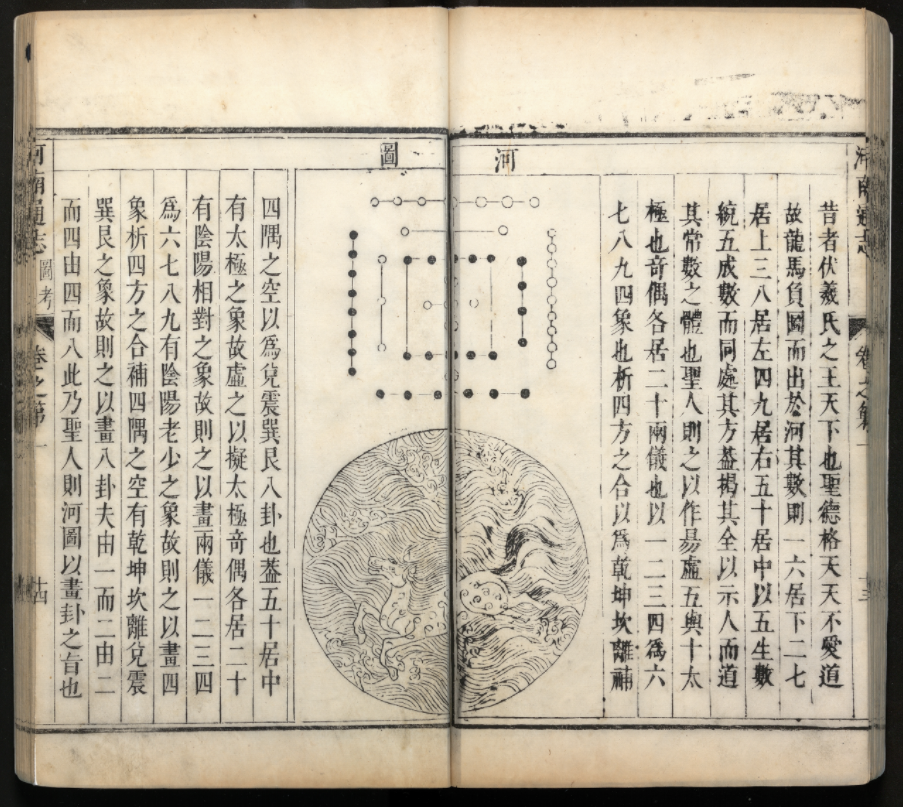 河圖
昔者伏羲氏之王天下也聖德格天天不愛道
故龍馬負圖而出於河其數則一六居下二七
居上三八居左四九居右五十居中以五生數
統五成數而同處其方葢揭其全以示人而道
其常數之體也聖人則之以作易虛五與十太
極也奇偶各居二十兩儀也以一二三四爲六
七八九四象也析四方之合以爲乾坤坎離補
四隅之空以爲兌震巽艮八卦也葢五十居中
有太極之象故虛之以擬太極奇偶各居二十
有陰陽相對之象故則之以畫兩儀一二三四
爲六七八九有陰陽老少之象故則之以畫四
象析四方之合補四隅之空有乾坤坎離兌震
巽艮之象故則之以畫八卦夫由一而二由二
而四由四而八此乃聖人則河圖以畫卦之旨也
河南通志
圖考
卷之第一
十四
河南通志
卷之第一
十三